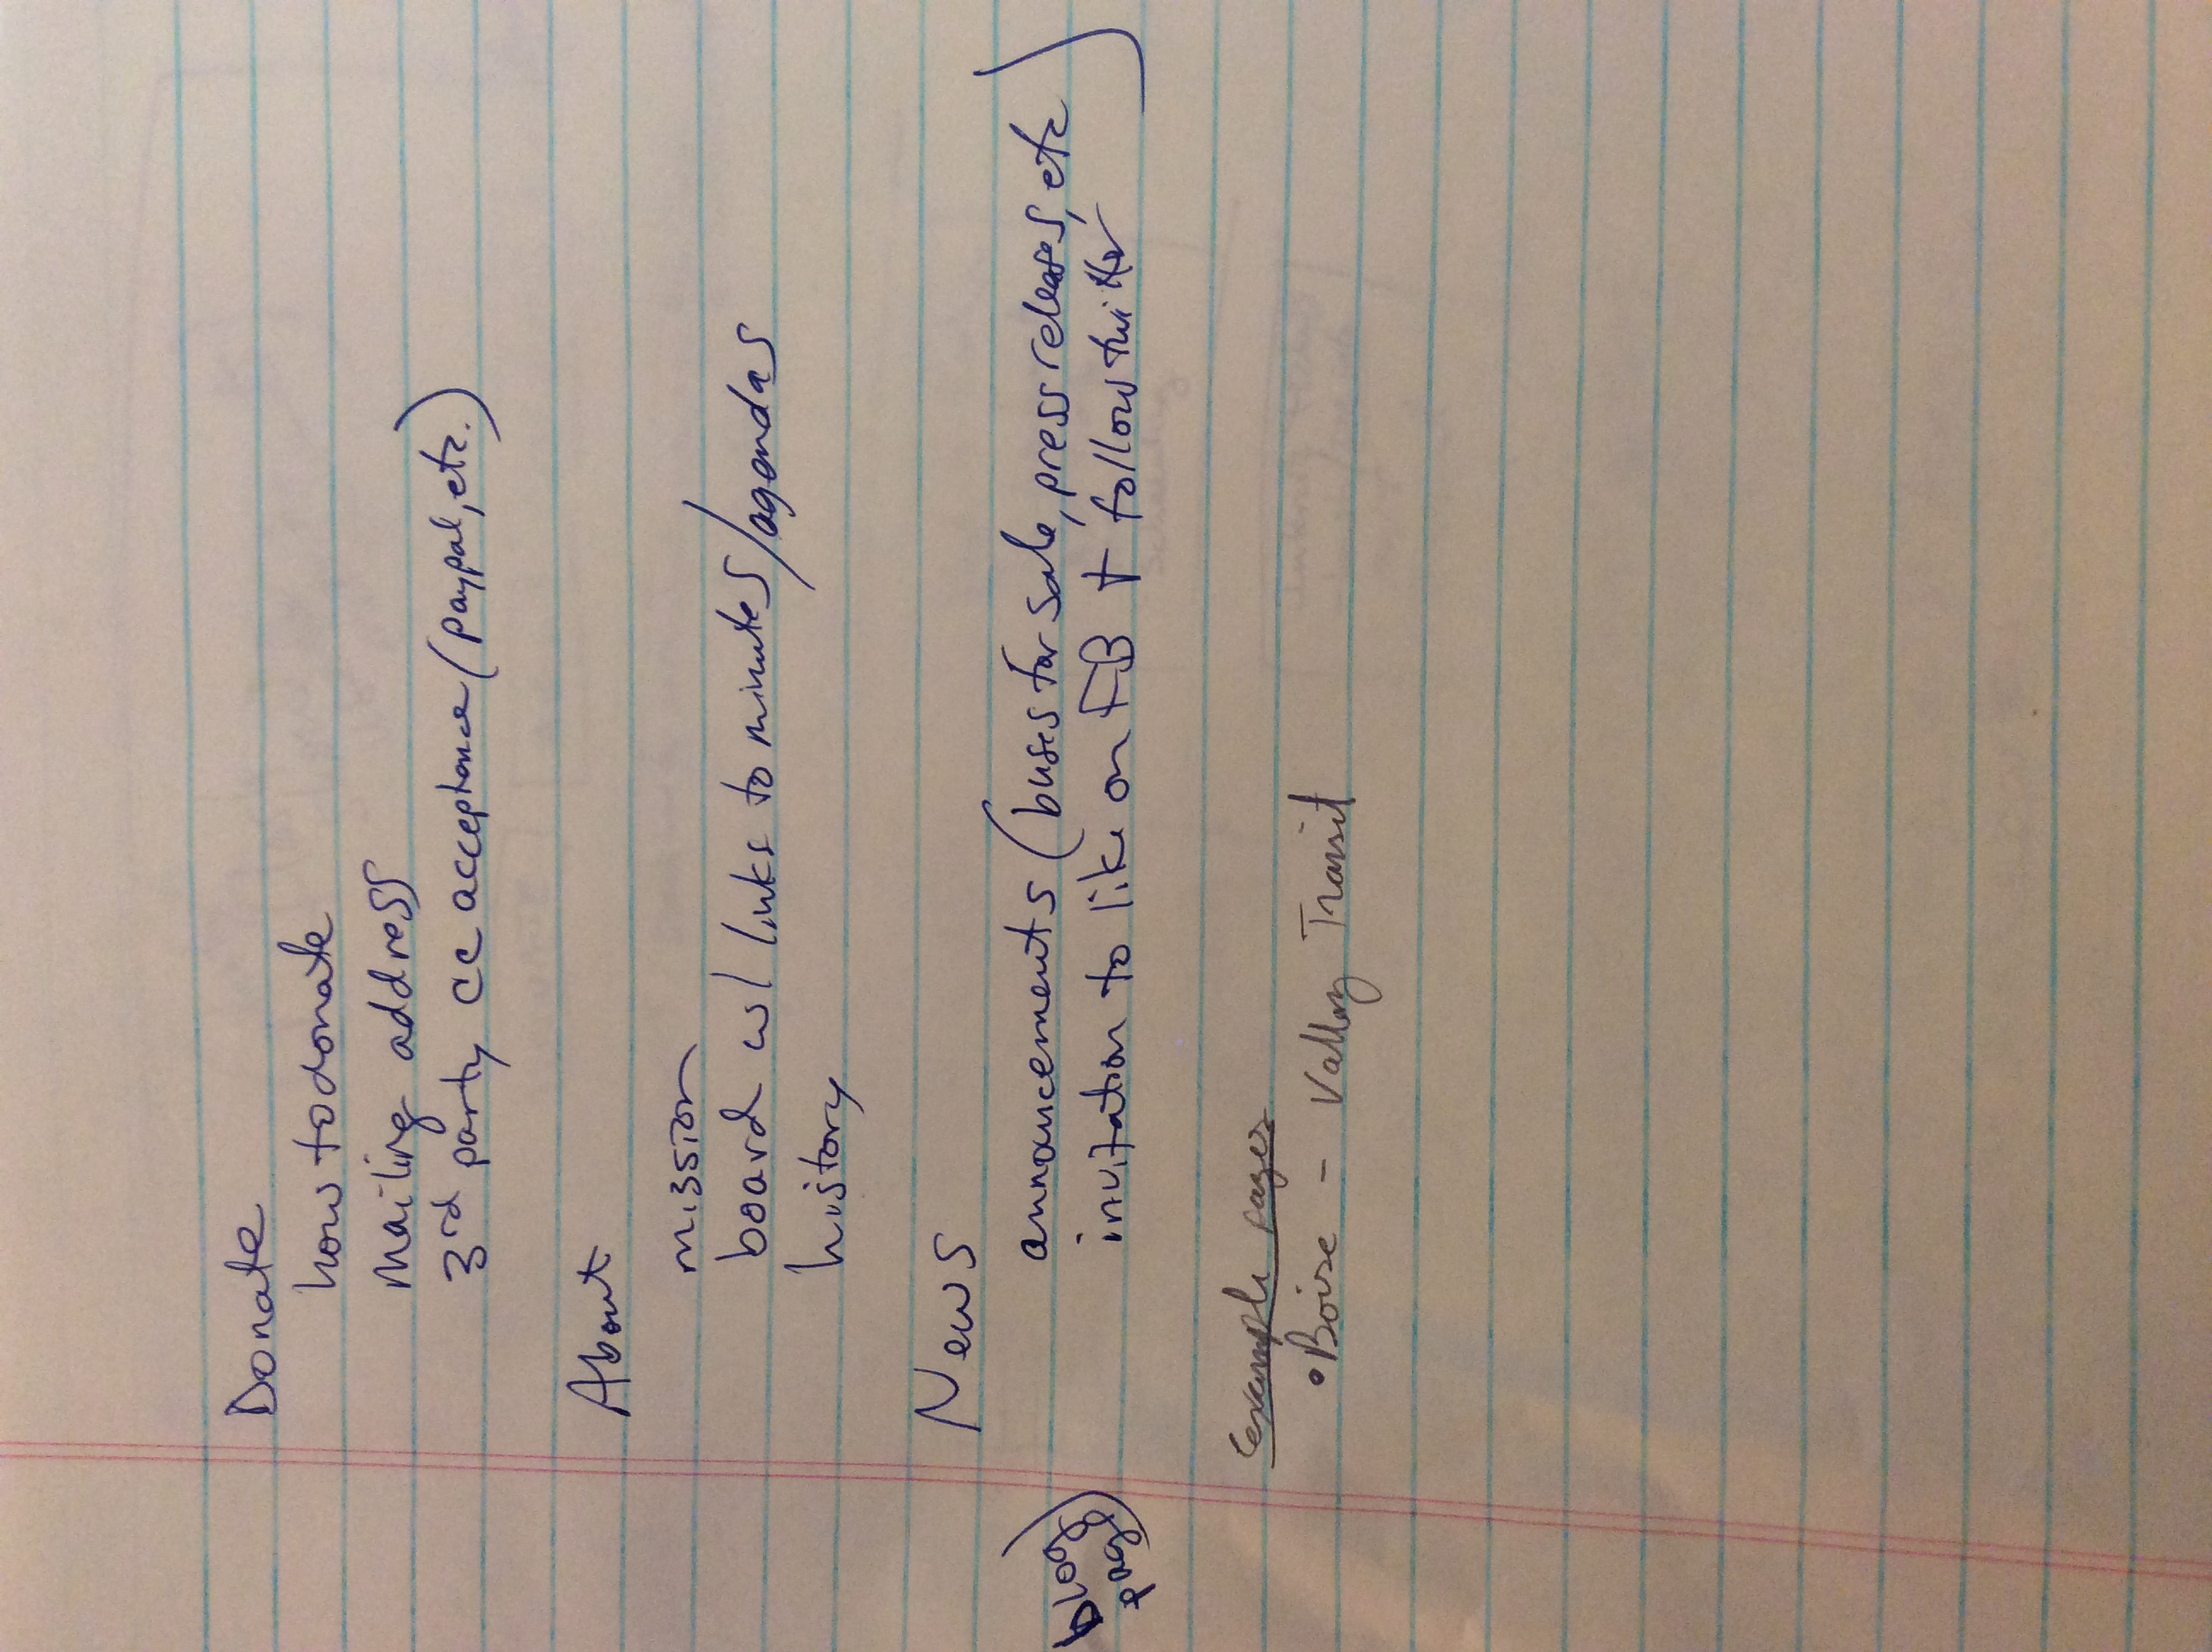 Donate
how to donate
mailing address
3rd party cc acceptance (paypal, etc.)
About
mission
board w/ links to minutes/agendas
history
News
announcements (buses for sale, press releases, etc
invitation to like on FB + follow twitter )
blog
page)
example pages
• Boise - Valley Transit